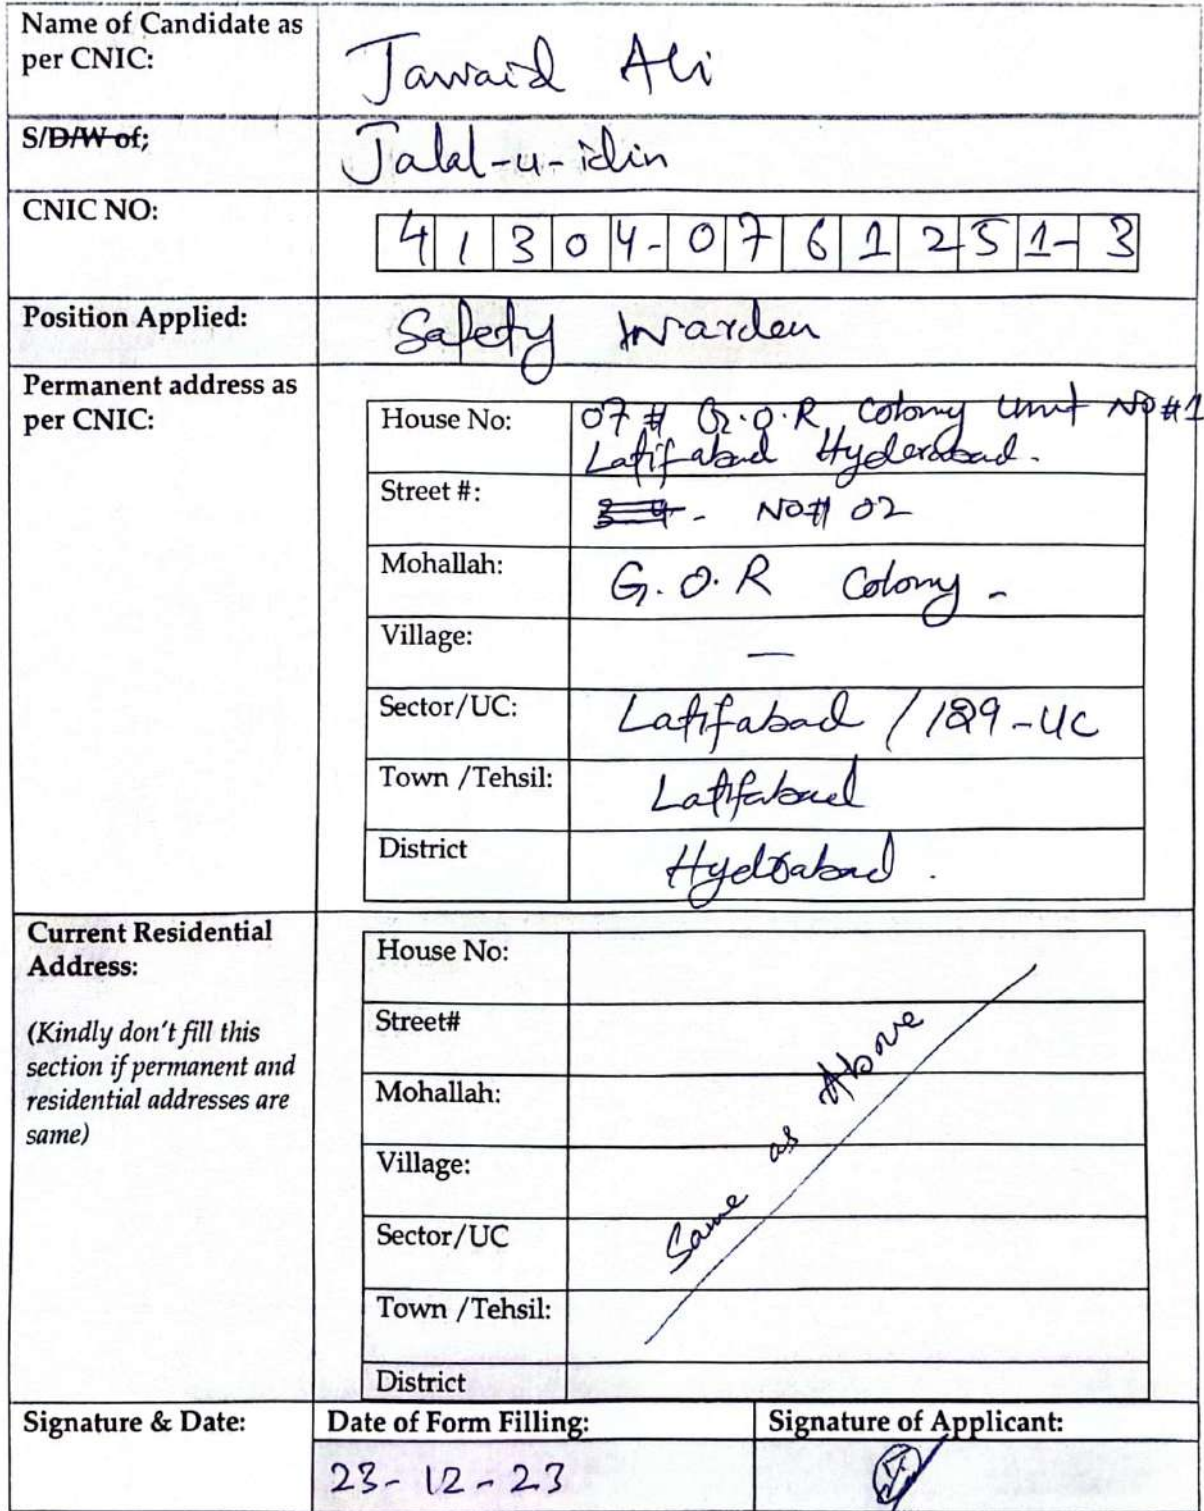 Name of Candidate as
per CNIC:
Jawaid Ali
S/D/W of;
Jalal-u-idin
CNIC NO:
41304-0761251-3
Position Applied:
Safety Warden
Permanent address as
per CNIC:
House No:
07 # G.O.R Colony Unit No #1
Latifabad Hyderabad.
Street #:
- NO# 02
Mohallah:
G.O.R Colony -
Village:
—
Sector/UC:
Latifabad / 129-UC
Town /Tehsil:
Latifabad
District
Hyderabad.
Current Residential
Address:
(Kindly don't fill this
section if permanent and
residential addresses are
same)
House No:
Street#
Mohallah:
Village:
Sector/UC
Town /Tehsil:
District
Same as Above
Signature & Date:
Date of Form Filling:
23-12-23
Signature of Applicant: